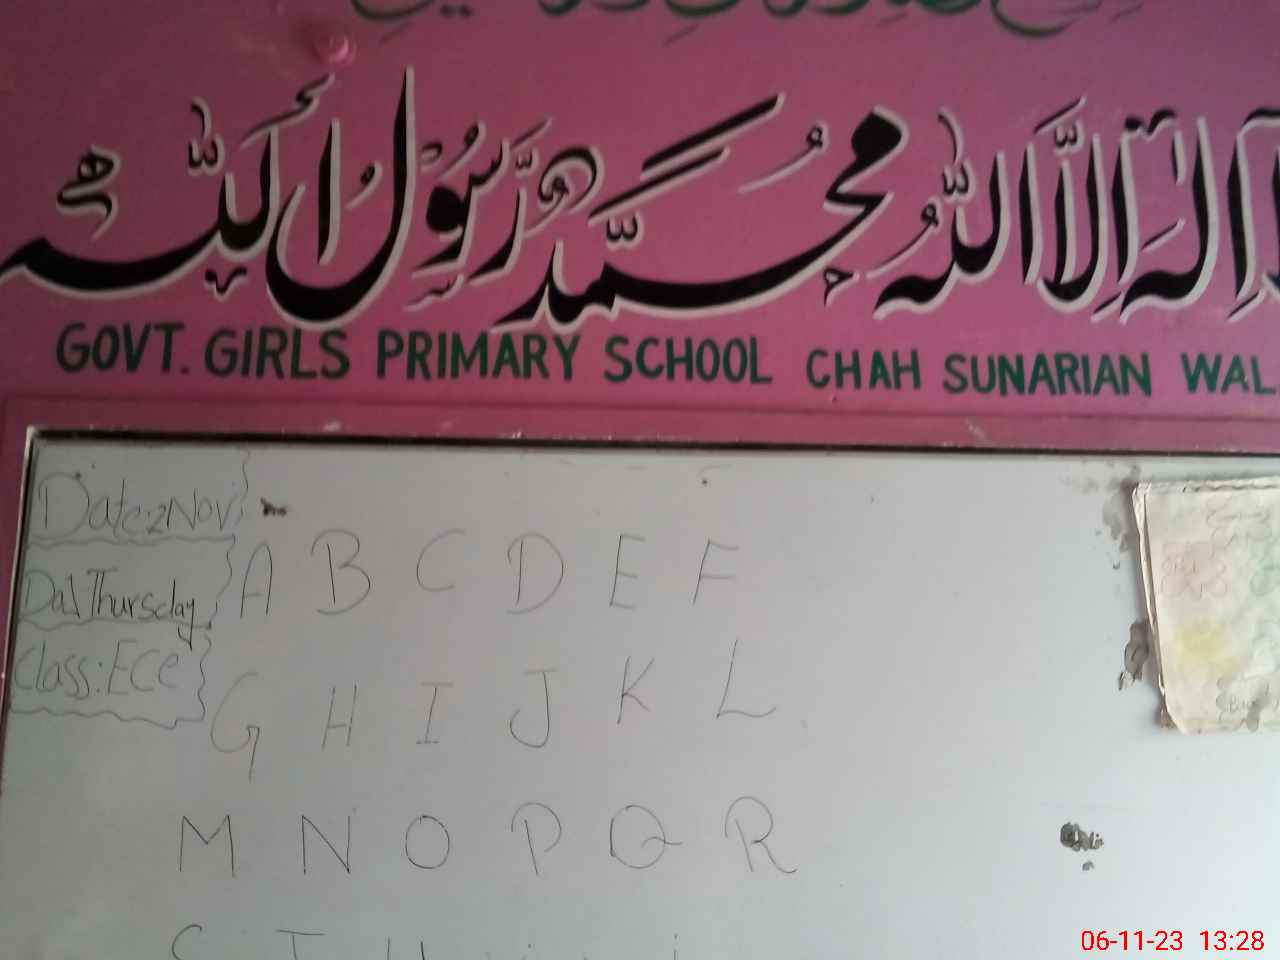 لا اله الا الله محمد رسول الله
GOVT. GIRLS PRIMARY SCHOOL CHAH SUNARIAN WAL
Date:2Nov
Day Thursday
Class:ECe
A B C D E F
G H I J K L
M N O P Q R
S T U
06-11-23 13:28